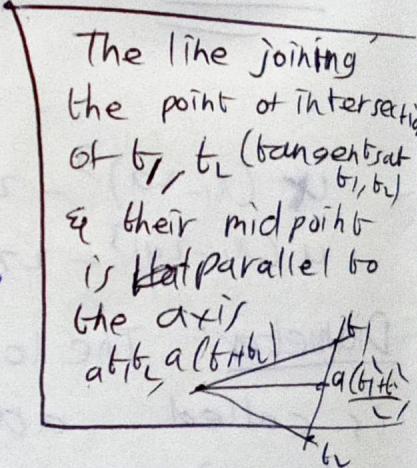 The line joining
the point of intersectio
of t₁, t₂ (tangents at
t₁, t₂)
& their midpoint
is parallel to
the axis
at₁t₂, a(t₁+t₂)
t₁
a(t₁+t₂)
2
t₂